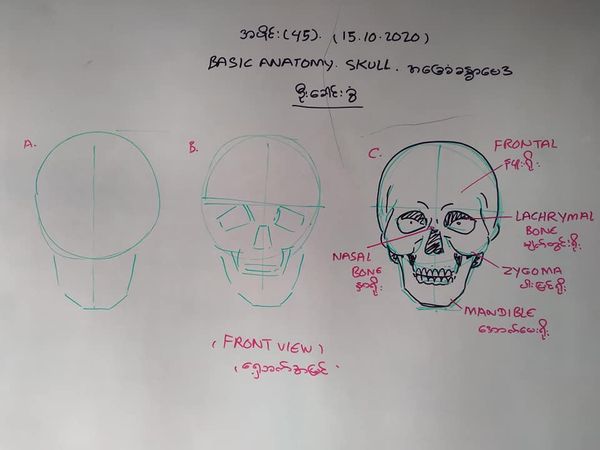 အပိုင်း (45). (15.10.2020)
BASIC ANATOMY. SKULL. အခြေခံခန္ဓာဗေဒ
ဦးခေါင်းခွံ
A.
B.
C.
FRONTAL
နဖူးရိုး
LACHRYMAL
BONE
မျက်တွင်းရိုး
NASAL
BONE
နှာရိုး
ZYGOMA
ပါးမြင့်ရိုး
MANDIBLE
အောက်မေးရိုး
(FRONT VIEW)
(ရှေ့ဘက်အမြင်)